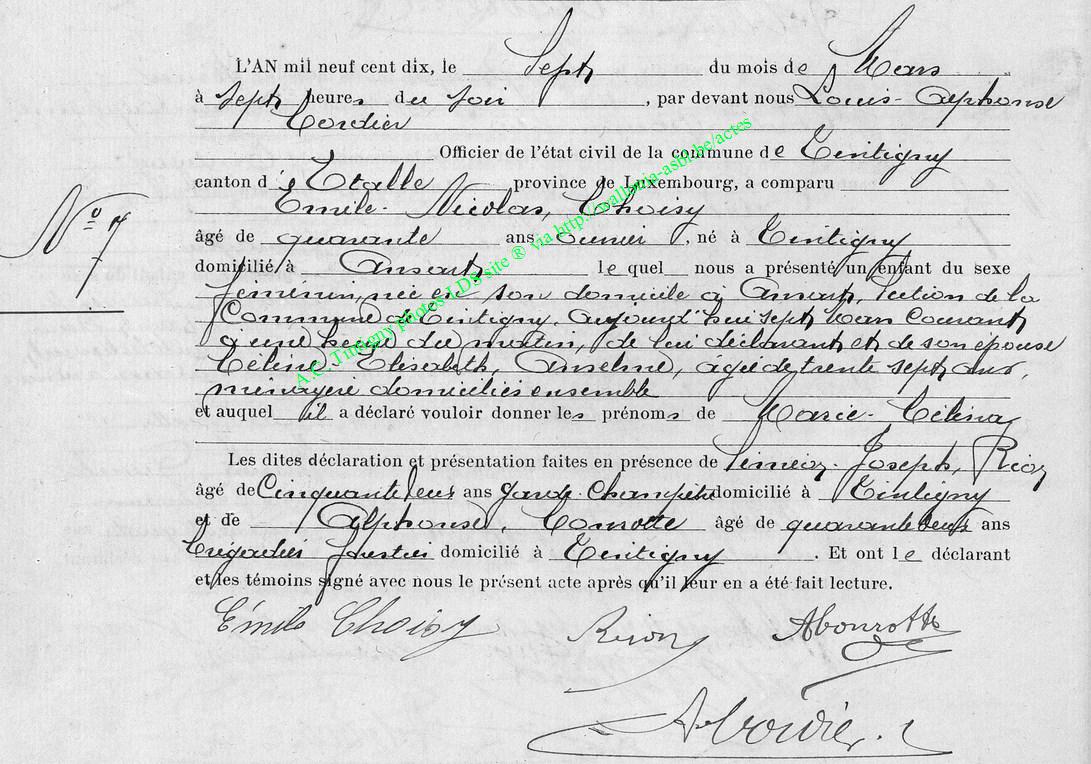 L'AN mil neuf cent dix, le Sept du mois de Mars
à Sept heures du soir, par devant nous Louis-Alphonse
Cordier
Officier de l'état civil de la commune de Tintigny
canton d'Etalle province de Luxembourg, a comparu
Emile-Nicolas, Choisy
âgé de quarante ans ouvrier, né à Tintigny
domicilié à Ansart lequel nous a présenté un enfant du sexe
féminin, née en son domicile à Ansart, section de la
Commune de Tintigny, aujourd'hui sept Mars Courant
à une heure du matin, de lui déclarant et de son épouse
Céline Elisabeth, Anselme, âgée de trente sept ans,
ménagère domiciliés ensemble
et auquel il a déclaré vouloir donner les prénoms de Marie-Célina
N° 7
Les dites déclaration et présentation faites en présence de Siméon-Joseph, Rion
âgé de Cinquante deux ans Garde-Champêtre domicilié à Tintigny
et de Alphonse, Bourotte âgé de quarante deux ans
brigadier forestier domicilié à Tintigny. Et ont le déclarant
et les témoins signé avec nous le présent acte après qu'il leur en a été fait lecture.
Emile Choisy Rion ABourotte
ACordier
A.C. Tintigny photos LDS site ® via http://wallonia-asbl.be/actes